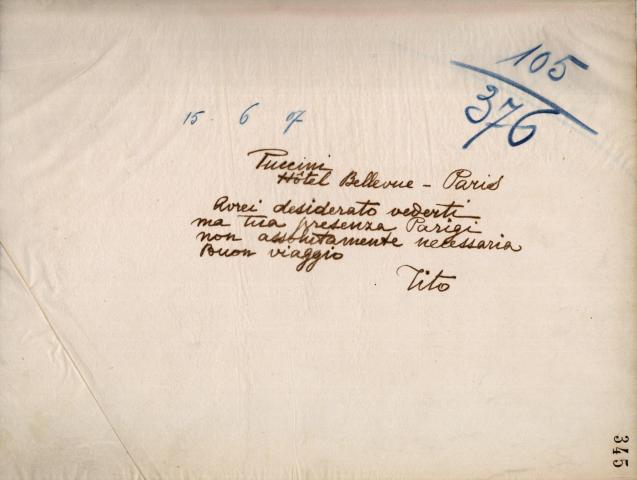 105
376
15. 6 07
Puccini
Hôtel Bellevue - Paris
Avrei desiderato vederti
ma tua presenza Parigi
non assolutamente necessaria
Buon viaggio
Tito
345